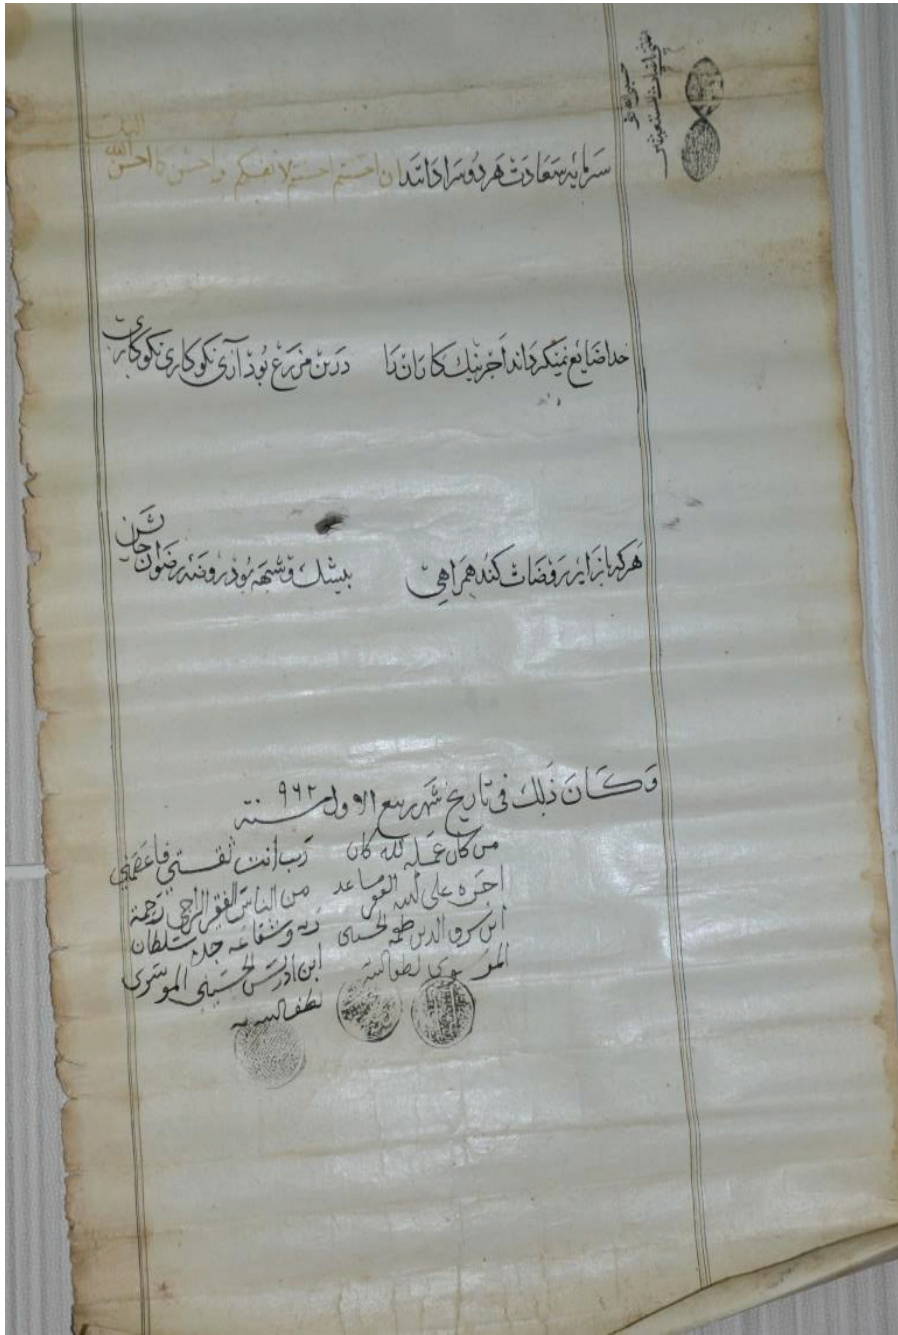 سرمایه سعادت هر دو سرا دانند ان احسنتم احسنتم لانفسکم و احسن کما احسن الله الیک
خدا ضایع نمیگرداند اجر نیک کاران را درین مزرع بود آری نکوکاری نکوکاری
هر که با زایر روضات کند همراهی بیشک و شبهه بود روضه رضوان جایش
وکان ذلک فی تاریخ شهر ربیع الاول سنة ۹۶۲
من کان عمله لله کان
اجره علی الله الفقیر
ابن الدین الحسینی
الموسوی لطف الله به
رب انت ثقتی فاعصمنی
من الناس الفقیر الراجی رحمة
ربه وشفاعة جده سلطان
ابن ادریس الحسینی الموسوی
لطف الله به